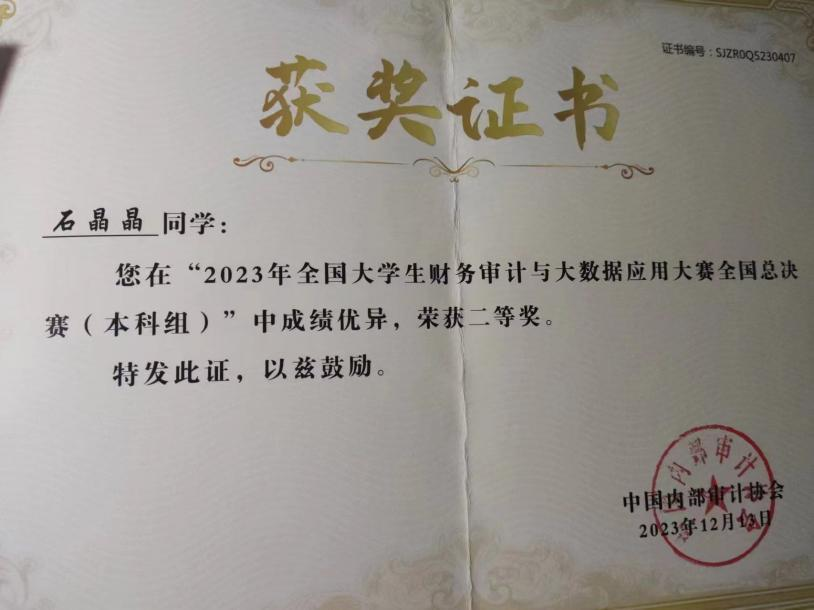 证书编号：SJZR0Q5230407
获奖证书
石晶晶 同学：
您在“2023年全国大学生财务审计与大数据应用大赛全国总决
赛（本科组）”中成绩优异，荣获二等奖。
特发此证，以兹鼓励。
中国内部审计协会
2023年12月13日